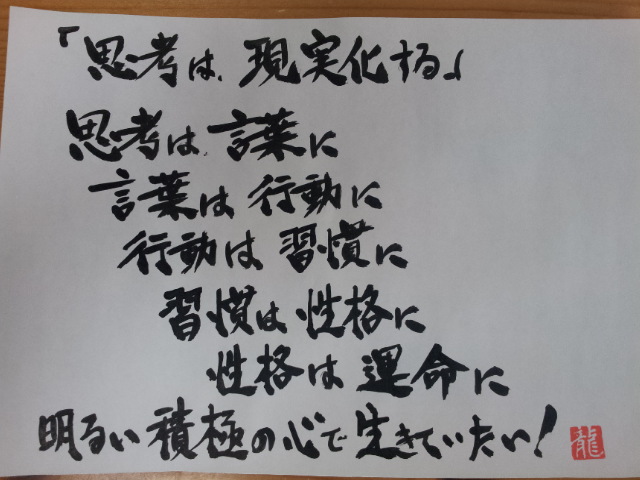 「思考は、現実化する」
思考は、言葉に
言葉は行動に
行動は習慣に
習慣は性格に
性格は運命に
明るい積極の心で生きていたい！
龍